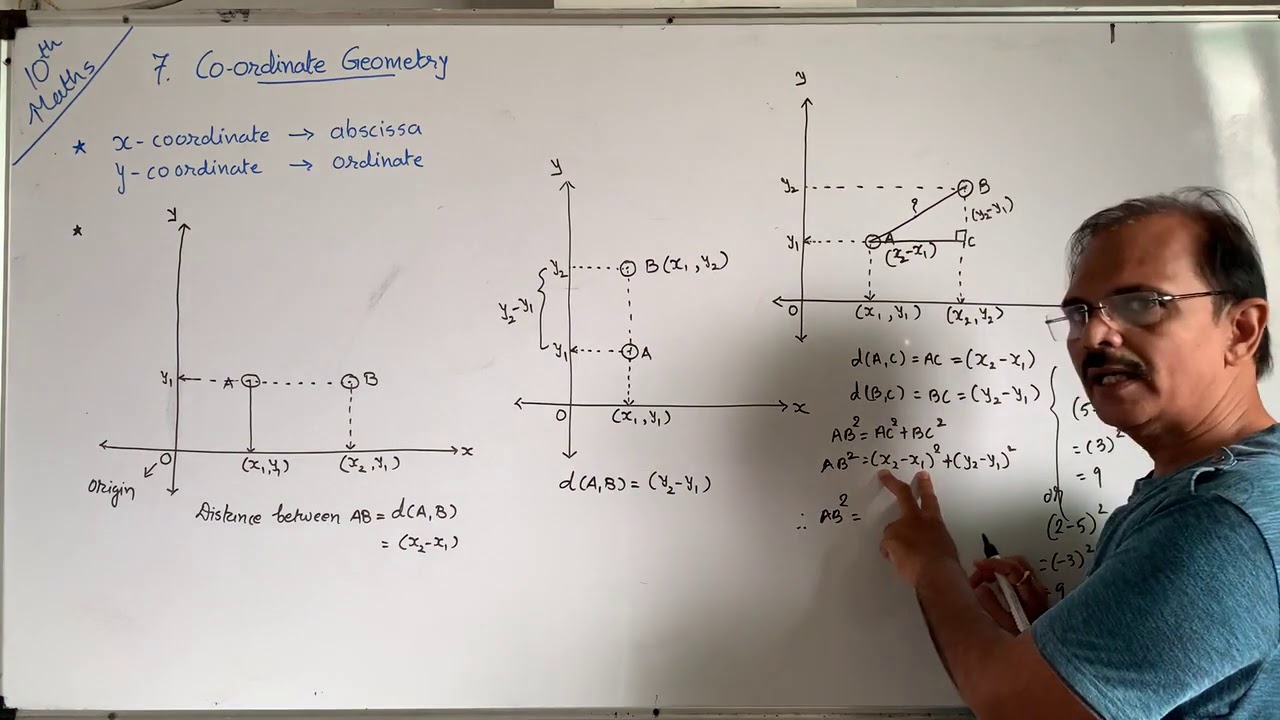 10th
Maths
7. Co-ordinate Geometry
* x-coordinate → abscissa
y-coordinate → ordinate
*
y
y₁
A
B
O
x
(x₁,y₁)
(x₂,y₁)
Origin
Distance between AB = d(A,B)
= (x₂-x₁)
y
y₂
B(x₁,y₂)
y₂-y₁
y₁
A
O
(x₁,y₁)
x
d(A,B) = (y₂-y₁)
y
y₂
B
?
(y₂-y₁)
y₁
A
C
(x₂-x₁)
O
(x₁,y₁)
(x₂,y₂)
d(A,C) = AC = (x₂-x₁)
d(B,C) = BC = (y₂-y₁)
AB² = AC² + BC²
AB² = (x₂-x₁)² + (y₂-y₁)²
∴ AB² =
(5-
= (3)²
= 9
or
(2-5)²
= (-3)²
9